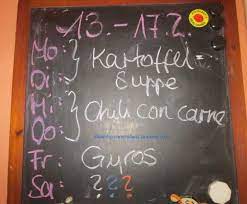 13.-17.2.
Mo: } Kartoffel=
Di: } Suppe
Mi: } Chili con carne
Do: }
Fr: Gyros
Sa: ???